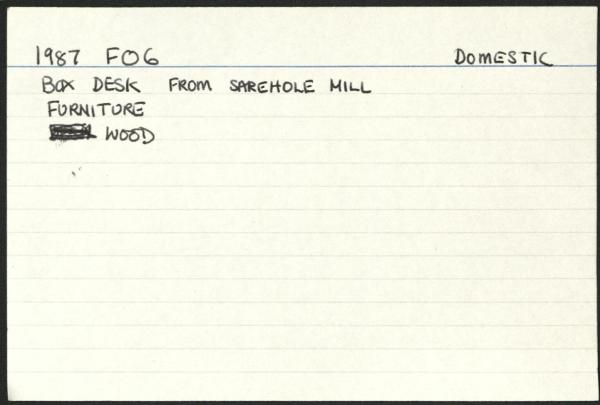 1987 FO6 DOMESTIC
BOX DESK FROM SAREHOLE MILL
FURNITURE
WOOD